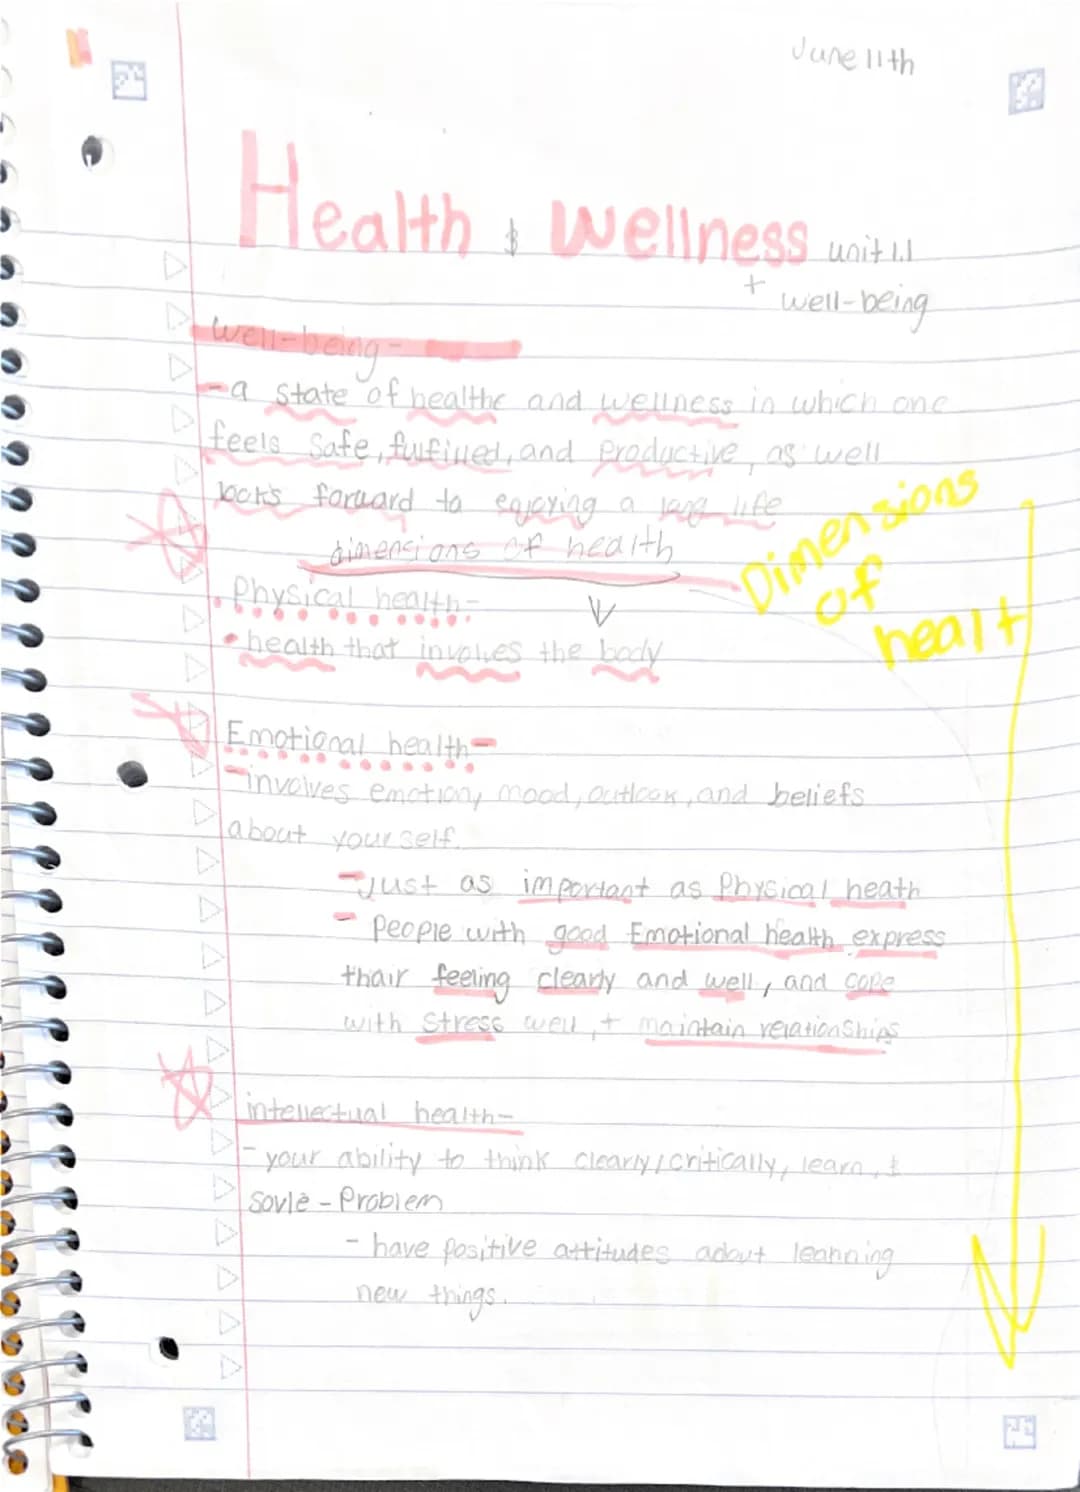 June 11th
Health & Wellness unit 1.1
+ well-being
well-being -
- a state of healthe and wellness in which one
feels safe, fulfilled, and productive, as well
looks forward to enjoying a long life
dimensions of health
Dimensions
of
healt
. Physical health -
• health that involves the body
Emotional health -
- involves emotion, mood, outlook, and beliefs
about yourself.
- Just as important as Physical heath
- People with good Emotional health express
thair feeling clearly and well, and cope
with stress well, + maintain relationships
intellectual health -
- your ability to think clearly/critically, learn, &
Sovle - Problem
- have positive attitudes adout leanning
new things.